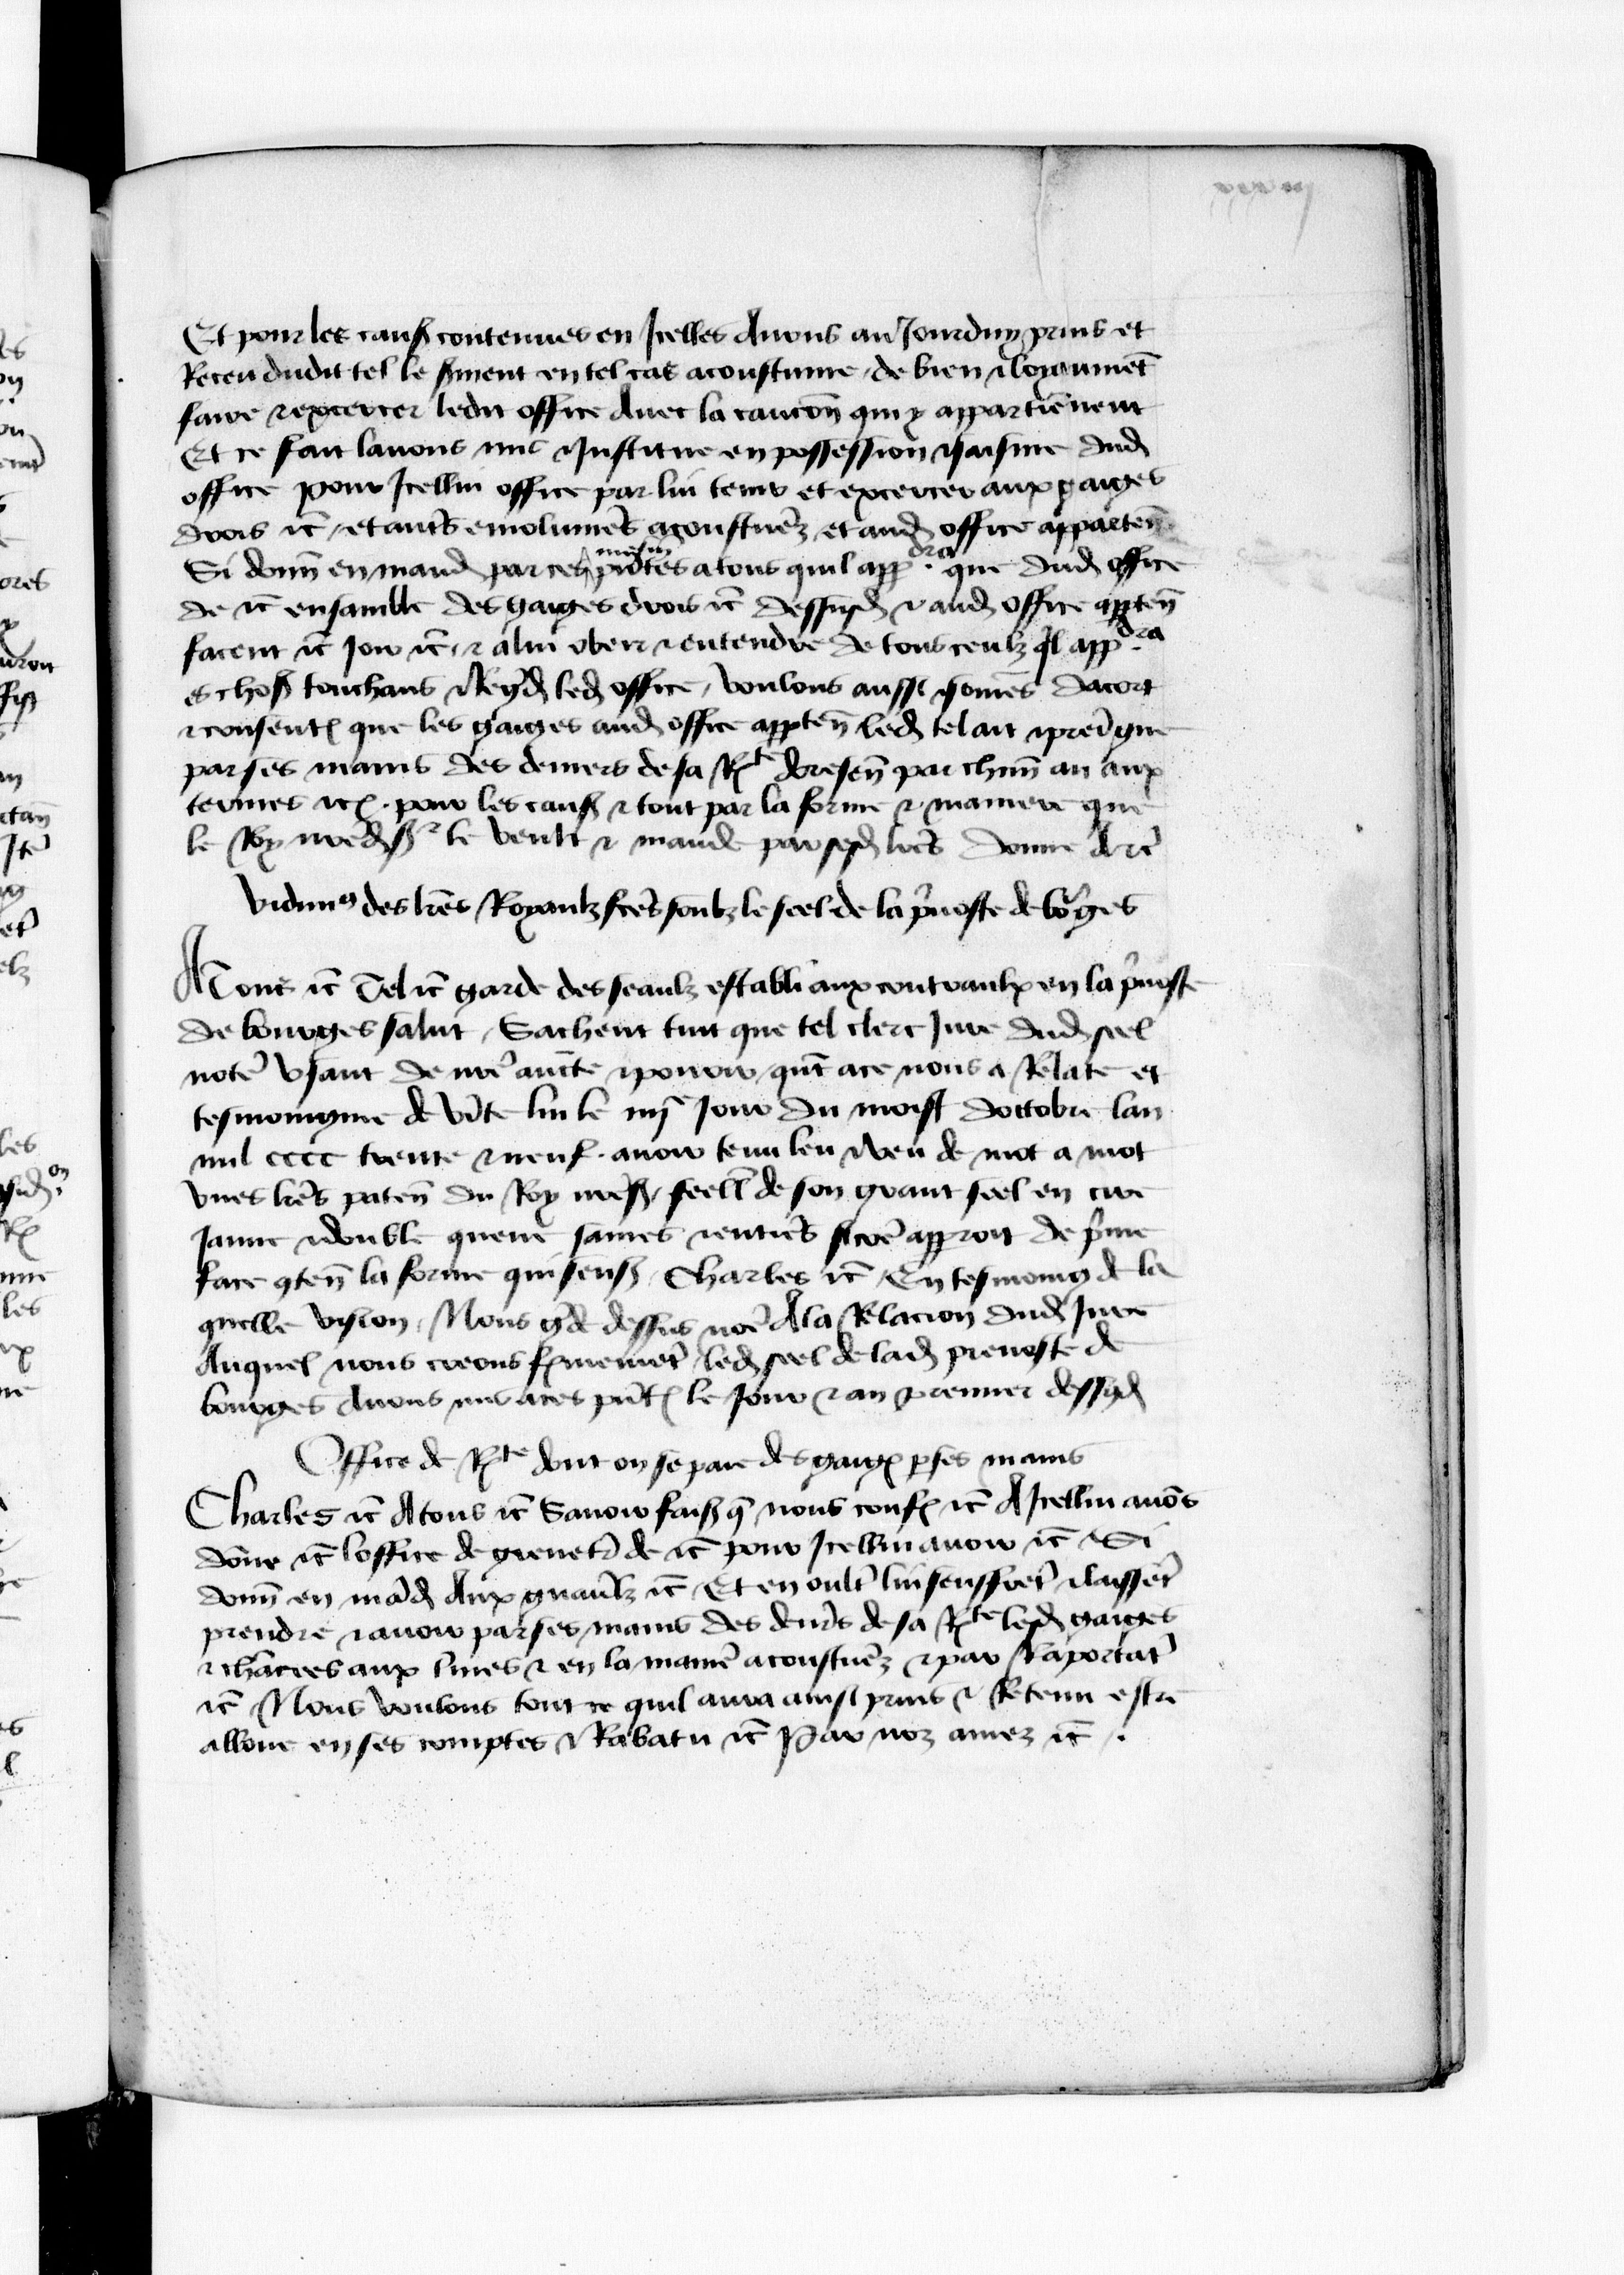 Et pour les caus contenues en Icelles Avons au Jourduy prins et
Receu dudit tel le sment en tel cas acoustume / de bien & loyaumēt
faire & excercer ledit office Avec la caucōn qui y appartiēnent
Et ce fait lavons mis & Institue en possession & saisine dud
office pour Icellui office par lui tenir et excercer aux gaiges
drois &c̄ / et autͤs emolumēs acoustuēz et aud office apparten̄
Si donn̄ en mand par ces mesm̄ pn̄tes a tous quil app.dra que dud office
de &c̄ ensamble des gaiges drois &c̄ dessusd & aud office apptēn
facent &c̄ Joir &c̄ / & a lui obeir & entendre de tous ceulz q̄l app.dra
es chos touchans & Regd led office / voulons aussi & somēs dacort
& consent que les gaiges aud office apptēn led tel ait & preīgne
par ses mains des deniers de sa Rte doresen̄ par chūn an aux
termes &c . pour les caus & tout par la forme & maniere que
le Roy nrēds r le veult & mande par sesd lrēs donne &c̄
vidimꝰ des lrēs Royaulz scēs soubz le seel de la p̄voste de bōrges
A Tous &c̄ Tel &c̄ garde des seaulz establi aux contraulx en la p̄voste
de bourges salut / Sachent tuit que tel clerc Jure dud seel
notē usant de nrē aucte & povoir quāt a ce nous a Relate et
tesmoingne de vīte lui le iiiͤ Jour du moiss doctobre lan
mil cccc trente & neuf . avoir tenu leu & veu de mot a mot
unes lrēs paten̄ du Roy nrēs / seell de son grant seel en cire
Jaune & double queue saines & entieres sicōe apparoit de p̄me
face ꝯten̄ la forme qui sens / Charles &c̄ / En tesmoing de la
quelle vision / Nous gde dessus nōe A la Relacion dud Jure
Auquel nous creons fermemēt led seel de lad prevoste de
bourges Avons mis a ces pn̄t le Jour & an premier dessusd
Office de Rte dont on se paie des gaig p ses mains
Charles &c̄ A tous &c̄ Savoir fais q̄ nous conf &c̄ A Icellui avōs
dōne &c̄ loffice de grenet̄ de &c̄ pour Icellui avoir &c̄ & Si
donn̄ en mād Aux gn̄aulz &c̄ Et en oult̄ lui seuffrēt & laissēt
prendre & avoir par ses mains des den̄rs de sa Rte lesd gaiges
& chācees aux tmes & en la maniē acoustuēz & par Raportāt
&c̄ Nous voulons tout ce quil aura ainsi prins & Retenu estre
alloue en ses comptes & Rabatu &c̄ Par noz amez &c̄ .